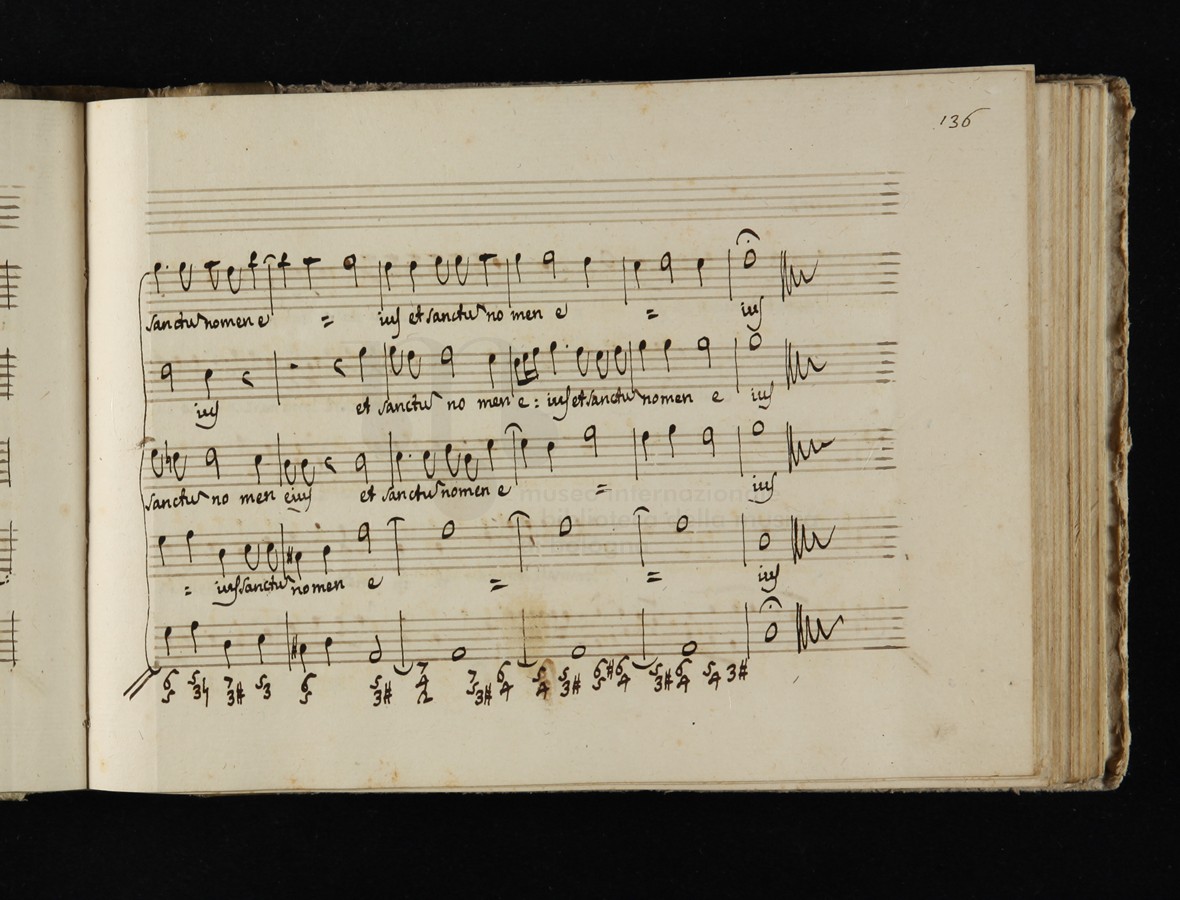 136
sanctum nomen e = ius et sanctum no men e = ius
ius et sanctum no men e: ius et sanctum nomen e ius
sanctum no men eius et sanctum nomen e = ius
= ius sanctum nomen e = = ius
museo internazionale
6 5 5 3♮ 7 3# 5 3 6 5 5 3# 7 4 2 7 5 3# 6 4 5 4 5 3# 6 5 #6 4 5 3# 6 4 5 4 3#